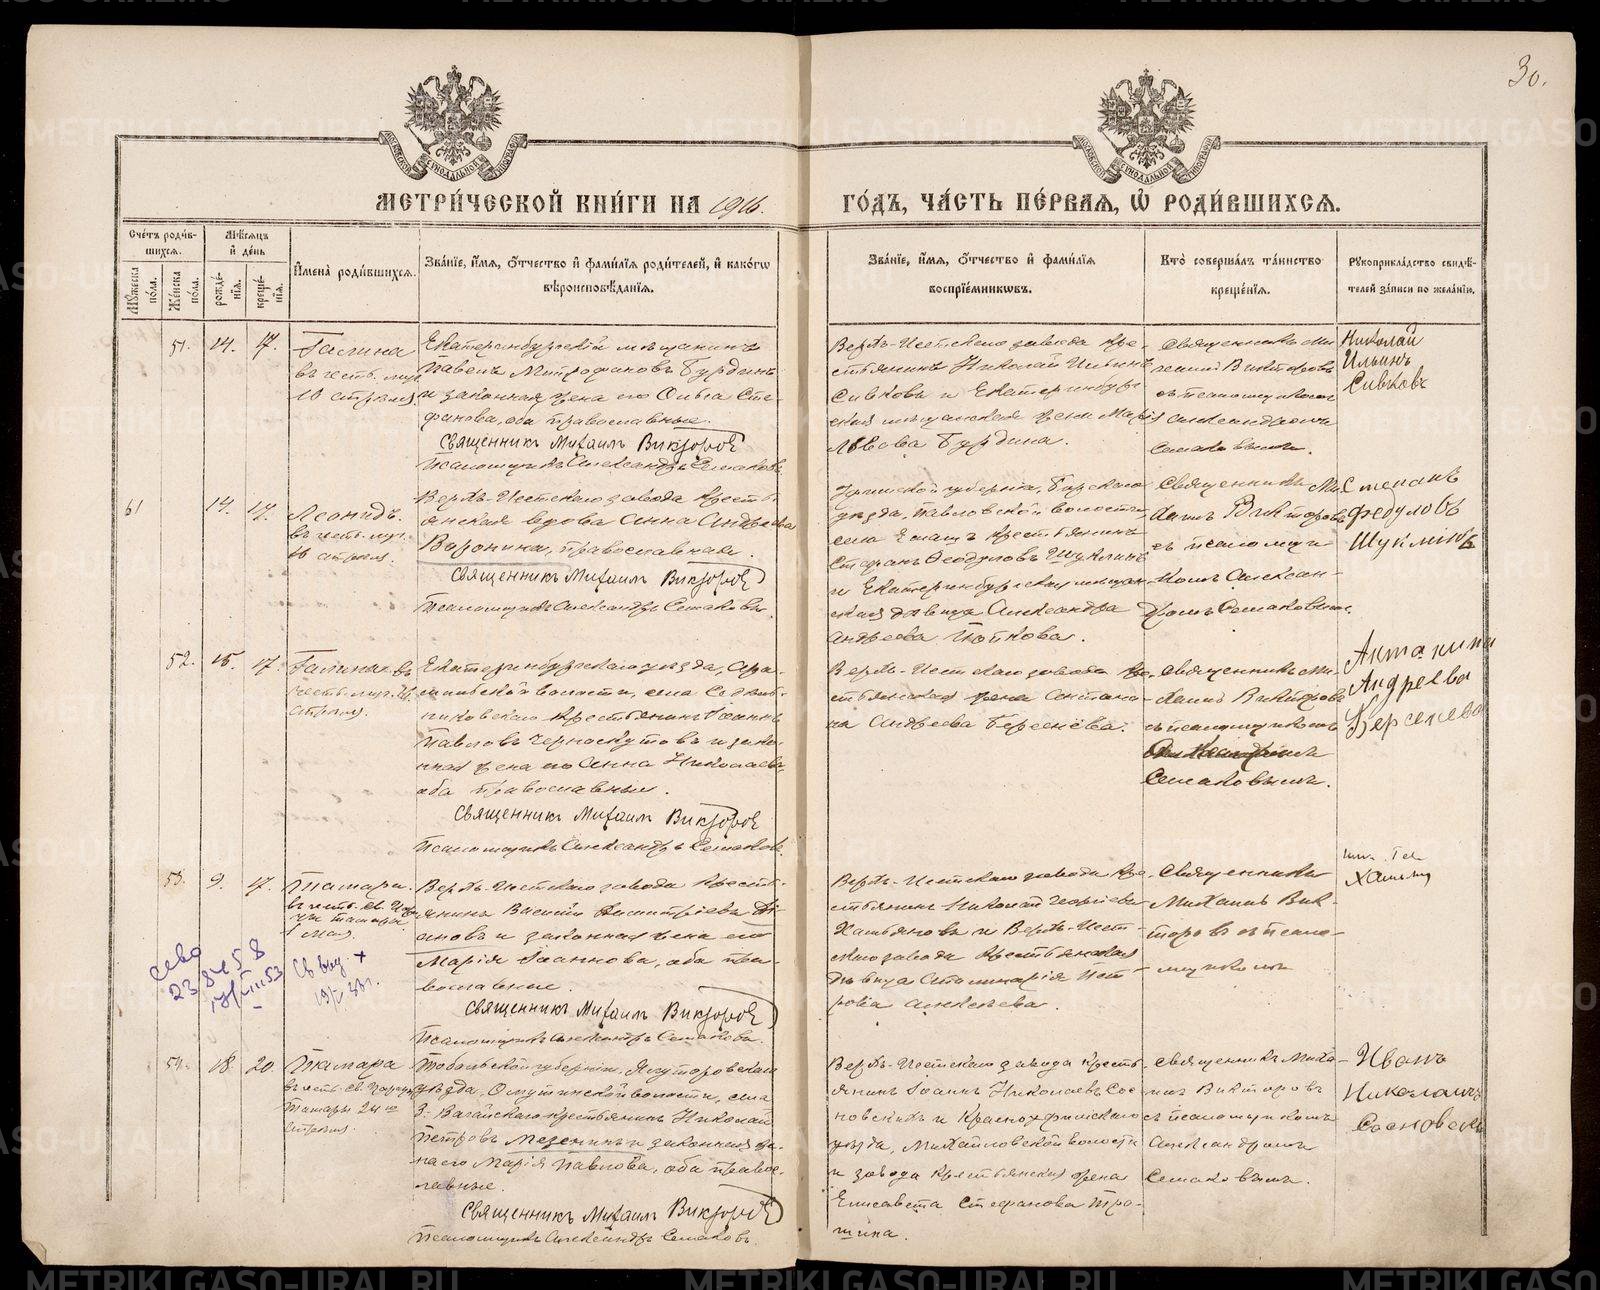 30.
МЕТРИ́ЧЕСКОЙ КНИ́ГИ НА 1916.
ГО́ДЪ, ЧА́СТЬ ПЕ́РВАЯ, Ѡ РОДИ́ВШИХСЯ.
Сче́тъ роди́вшихся.
Мѣ́сяцъ и де́нь
Мꙋ́жеска по́ла.
Же́нска по́ла.
рожде́нїя.
креще́нїя.
Имена̀ роди́вшихся.
Зва́нїе, и́мя, ѻ́тчество и фами́лїя роди́телей, и како́гѡ
вѣроисповѣ́данїя.
Зва́нїе, и́мя, ѻ́тчество и фами́лїя
воспрїе́мникѡвъ.
Кто̀ соверша́лъ та́инство
креще́нїя.
Рꙋкоприкла́дство свидѣ́-
телей за́писи по жела́нїю.
51. 14. 17.
Галина
въ честь муч.
10 апрѣля
Екатеринбургскій мѣщанинъ
Павелъ Митрофановъ Бурдинъ
и законная жена его Ольга Сте-
фанова, оба православные.
Священникъ Михаилъ Викторовъ
Псаломщикъ Александръ Семаковъ
Верхъ-Исетскаго завода кре-
стьянинъ Николай Ильинъ
Сивковъ и Екатеринбург-
ская мѣщанская жена Марія
Львова Бурдина.
Священникъ Ми-
хаилъ Викторовъ
съ псаломщикомъ
Александромъ
Семаковымъ.
Николай
Ильинъ
Сивковъ
61 14. 17.
Леонидъ.
въ честь муч.
16 апрѣля.
Верхъ-Исетскаго завода кресть-
янская вдова Анна Андреева
Воронина, православная.
Священникъ Михаилъ Викторовъ
Псаломщикъ Александръ Семаковъ.
Уфимской губерніи, Бирскаго
уѣзда, Павловской волости
села Емашъ крестьянинъ
Стефанъ Ѳеодуловъ Шуклинъ
и Екатеринбургская мѣщан-
ская дѣвица Александра
Андреева Попкова.
Священникъ Ми-
хаилъ Викторовъ
съ псаломщи-
комъ Алексан-
дромъ Семаковымъ.
Степанъ
Федуловъ
Шуклинъ
52. 15. 17.
Галина въ
честь муч. 16
апрѣля.
Екатеринбургскаго уѣзда, Ара-
мильской волости, села
крестьянинъ Іоаннъ
Павловъ Черноскутовъ и зако-
нная жена его Анна Николаева,
оба православные.
Священникъ Михаилъ Викторовъ
Псаломщикъ Александръ Семаковъ.
Верхъ-Исетскаго завода кре-
стьянская жена Антони-
на Андреева Берсенева.
Священникъ Ми-
хаилъ Викторовъ
съ псаломщикомъ
Александромъ
Семаковымъ.
Андреева
Берсенева
53. 9. 17.
Тамара.
въ честь св. Ца-
рицы Тамары
1 мая
Верхъ-Исетскаго завода кресть-
янинъ Василій Димитріевъ Ді-
ановъ и законная жена его
Марія Іоаннова, оба пра-
вославные.
Священникъ Михаилъ Викторовъ
Псаломщикъ Александръ Семаковъ.
Верхъ-Исетскаго завода кре-
стьянинъ Николай Георгіевъ
Хамьяновъ и Верхъ-Исет-
скаго завода крестьянская
дѣвица Апполинарія Пет-
рова Алексѣева.
Священникъ
Михаилъ Вик-
торовъ съ псало-
мщикомъ
54. 18. 20.
Тамара
въ честь св. Царицы
Тамары 24го
апрѣля.
Тобольской губерніи, Ялуторовскаго
уѣзда, Омутинской волости, села
З. Вагайскаго крестьянинъ Николай
Петровъ Мезенинъ и законная же-
на его Марія Павлова, оба право-
славные.
Священникъ Михаилъ Викторовъ
Псаломщикъ Александръ Семаковъ.
Верхъ-Исетскаго завода кресть-
янинъ Іоаннъ Николаевъ Сос-
новскихъ и Красноуфимскаго
уѣзда, Михайловской волости
и завода крестьянская жена
Елисавета Стефанова Тро-
шина.
Священникъ Миха-
илъ Викторовъ
съ псаломщикомъ
Александромъ
Семаковымъ.
Иванъ
Николаичъ
Сосновских
METRIKI.GASO-URAL.RU